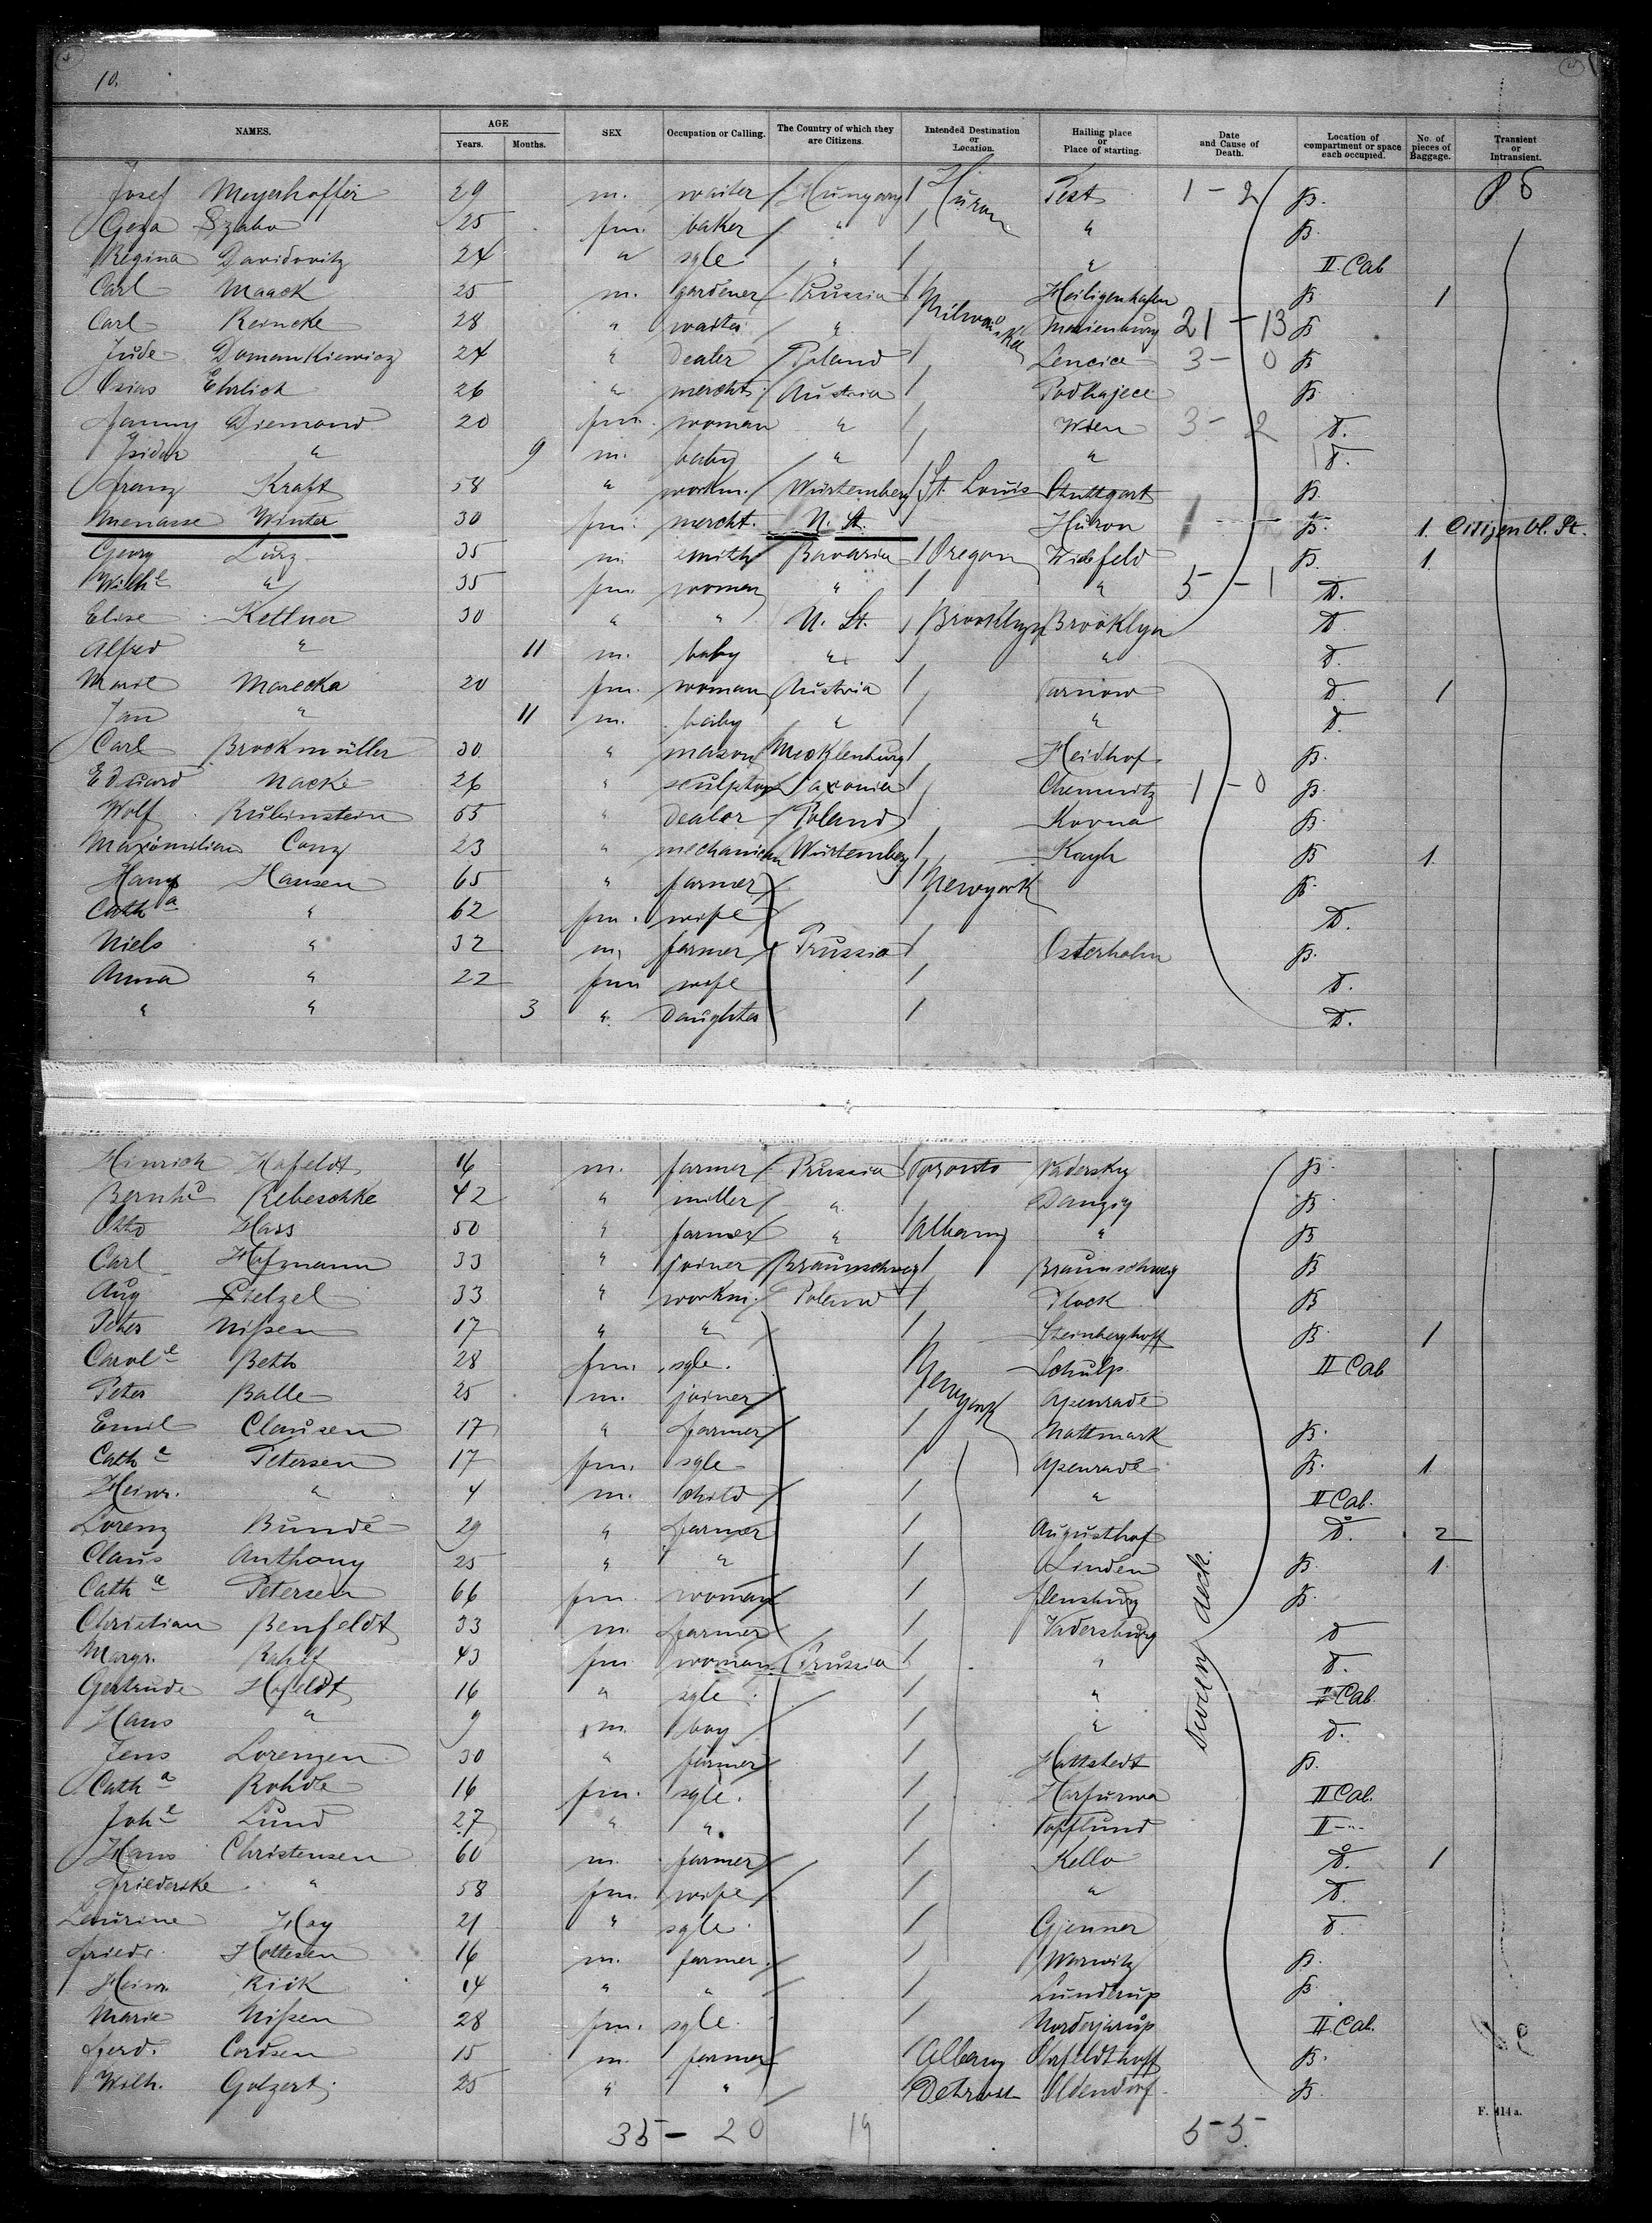 10.
NAMES. AGE Years. Months. SEX Occupation or Calling. The Country of which they are Citizens. Intended Destination or Location. Hailing place or Place of starting. Date and Cause of Death. Location of compartment or space each occupied. No. of pieces of Baggage. Transient or Intransient.
Josef Meyerhoffer 29 m. waiter Hungary Huron Pest 1 - 2 B.
Geza Szabo 25 fm. baker " " B.
Regina Davidovitz 24 " sgle " " II. Cab
Carl Maack 25 m. gardener Prussia Milwaukee Heiligenhafen B 1
Carl Reincke 28 " waiter " Marienburg 21 - 13 B
Jude Domankiewicz 24 " dealer Poland Lencice 3 - 0 B
Osias Ehrlich 26 " mercht. Austria Podhajece B.
Fanny Diemand 20 fm. woman " Wien 3 - 2 D.
Isidor " 9 m. baby " " D.
Franz Kraft 58 " workm. Würtemberg St. Louis Stuttgart B.
Menasse Winter 30 fm. mercht. U. St. Huron B. 1. Citizen
Georg Lurz 35 m. smith Bavaria Oregon Wiesfeld B. 1.
Wilhe " 35 fm. woman " " 5 - 1 D.
Elise Kettner 30 " " U. St. Brooklyn Brooklyn D
Alfred " 11 m. baby " " D.
Marie Marecka 20 fm. woman Austria Tarnow D. 1
Jan " 11 m. baby " " D.
Carl Brockmüller 30 " mason Mecklenburg Heidhof B.
Eduard Nacke 26 " sculptor Saxonia Chemnitz 1 - 0 B.
Wolf Rubinstein 55 " dealer Poland Kovna B.
Maximilian Conz 23 " mechanican Würtemberg Kayh B 1.
Hans Hansen 65 " farmer Newyork B.
Catha " 62 fm. wife D.
Niels " 32 m. farmer Prussia Osterholm B.
Anna " 22 fm wife D.
" " 3 " Daughter D.
Hinrich Hofeldt 16 m. farmer Prussia Toronto B.
Bernhd Rebeschke 42 " miller " Danzig B
Otto Hass 50 " farmer " Albany " B
Carl Hofmann 33 " joiner Braunschweg Braunschweg B
Aug Stelzel 33 " workm. Poland Plock B
Peter Nissen 17 " " Steinberghoff B. 1
Carole Beth 28 fm. sgle. Newyork Schulp II Cab
Peter Balle 25 m. joiner Apenrade
Emil Clausen 17 " farmer Nottmark B.
Cathe Petersen 17 fm. sgle Apenrade B. 1
Heinr. " 4 m. child " II Cab.
Lorenz Bunde 29 " farmer Augusthof D. 2
Claus Anthony 25 " " Linden B. 1.
Catha Petersen 66 fm. woman Flensburg B.
Christian Benfeldt 33 m. farmer D
Margr. Rahlf 43 fm woman Prussia " D.
Gertrude Hofeldt 16 " sgle " II Cab.
Hans " 9 m. boy " D.
Jens Lorenzen 30 " farmer Hattstedt B.
Catha Rohde 16 fm. sgle. II Cab.
Johe Lund 27 " " Topflund II --
Hans Christensen 60 m. farmer Kello D. 1
Friederike " 58 fm. wife " D.
Laurine Hoy 21 " sgle. Gjenner D.
Friedr. Holtesen 16 m. farmer Warwitz B.
Heinr. Rick 14 " " Lunderup B.
Marie Nissen 28 fm. sgle. Norderjarup II. Cab.
Ferd. Cordsen 15 m. farmer Albany B.
Wilh. Golzert 25 " " Detroit Oldendorf B.
deck.
35 - 20 19 55
F. 414 a.